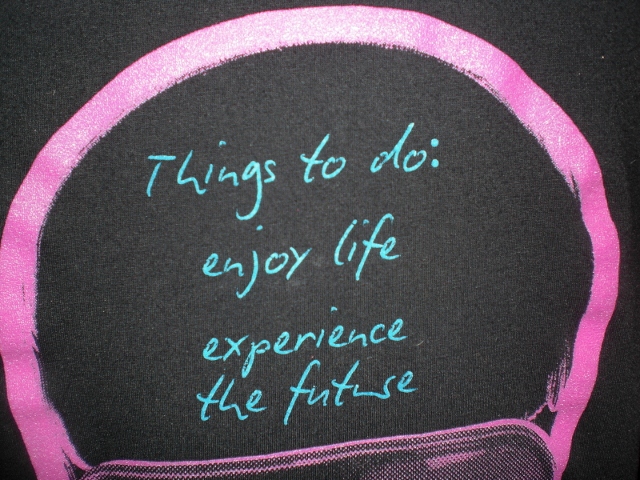 Things to do:
enjoy life
experience
the future